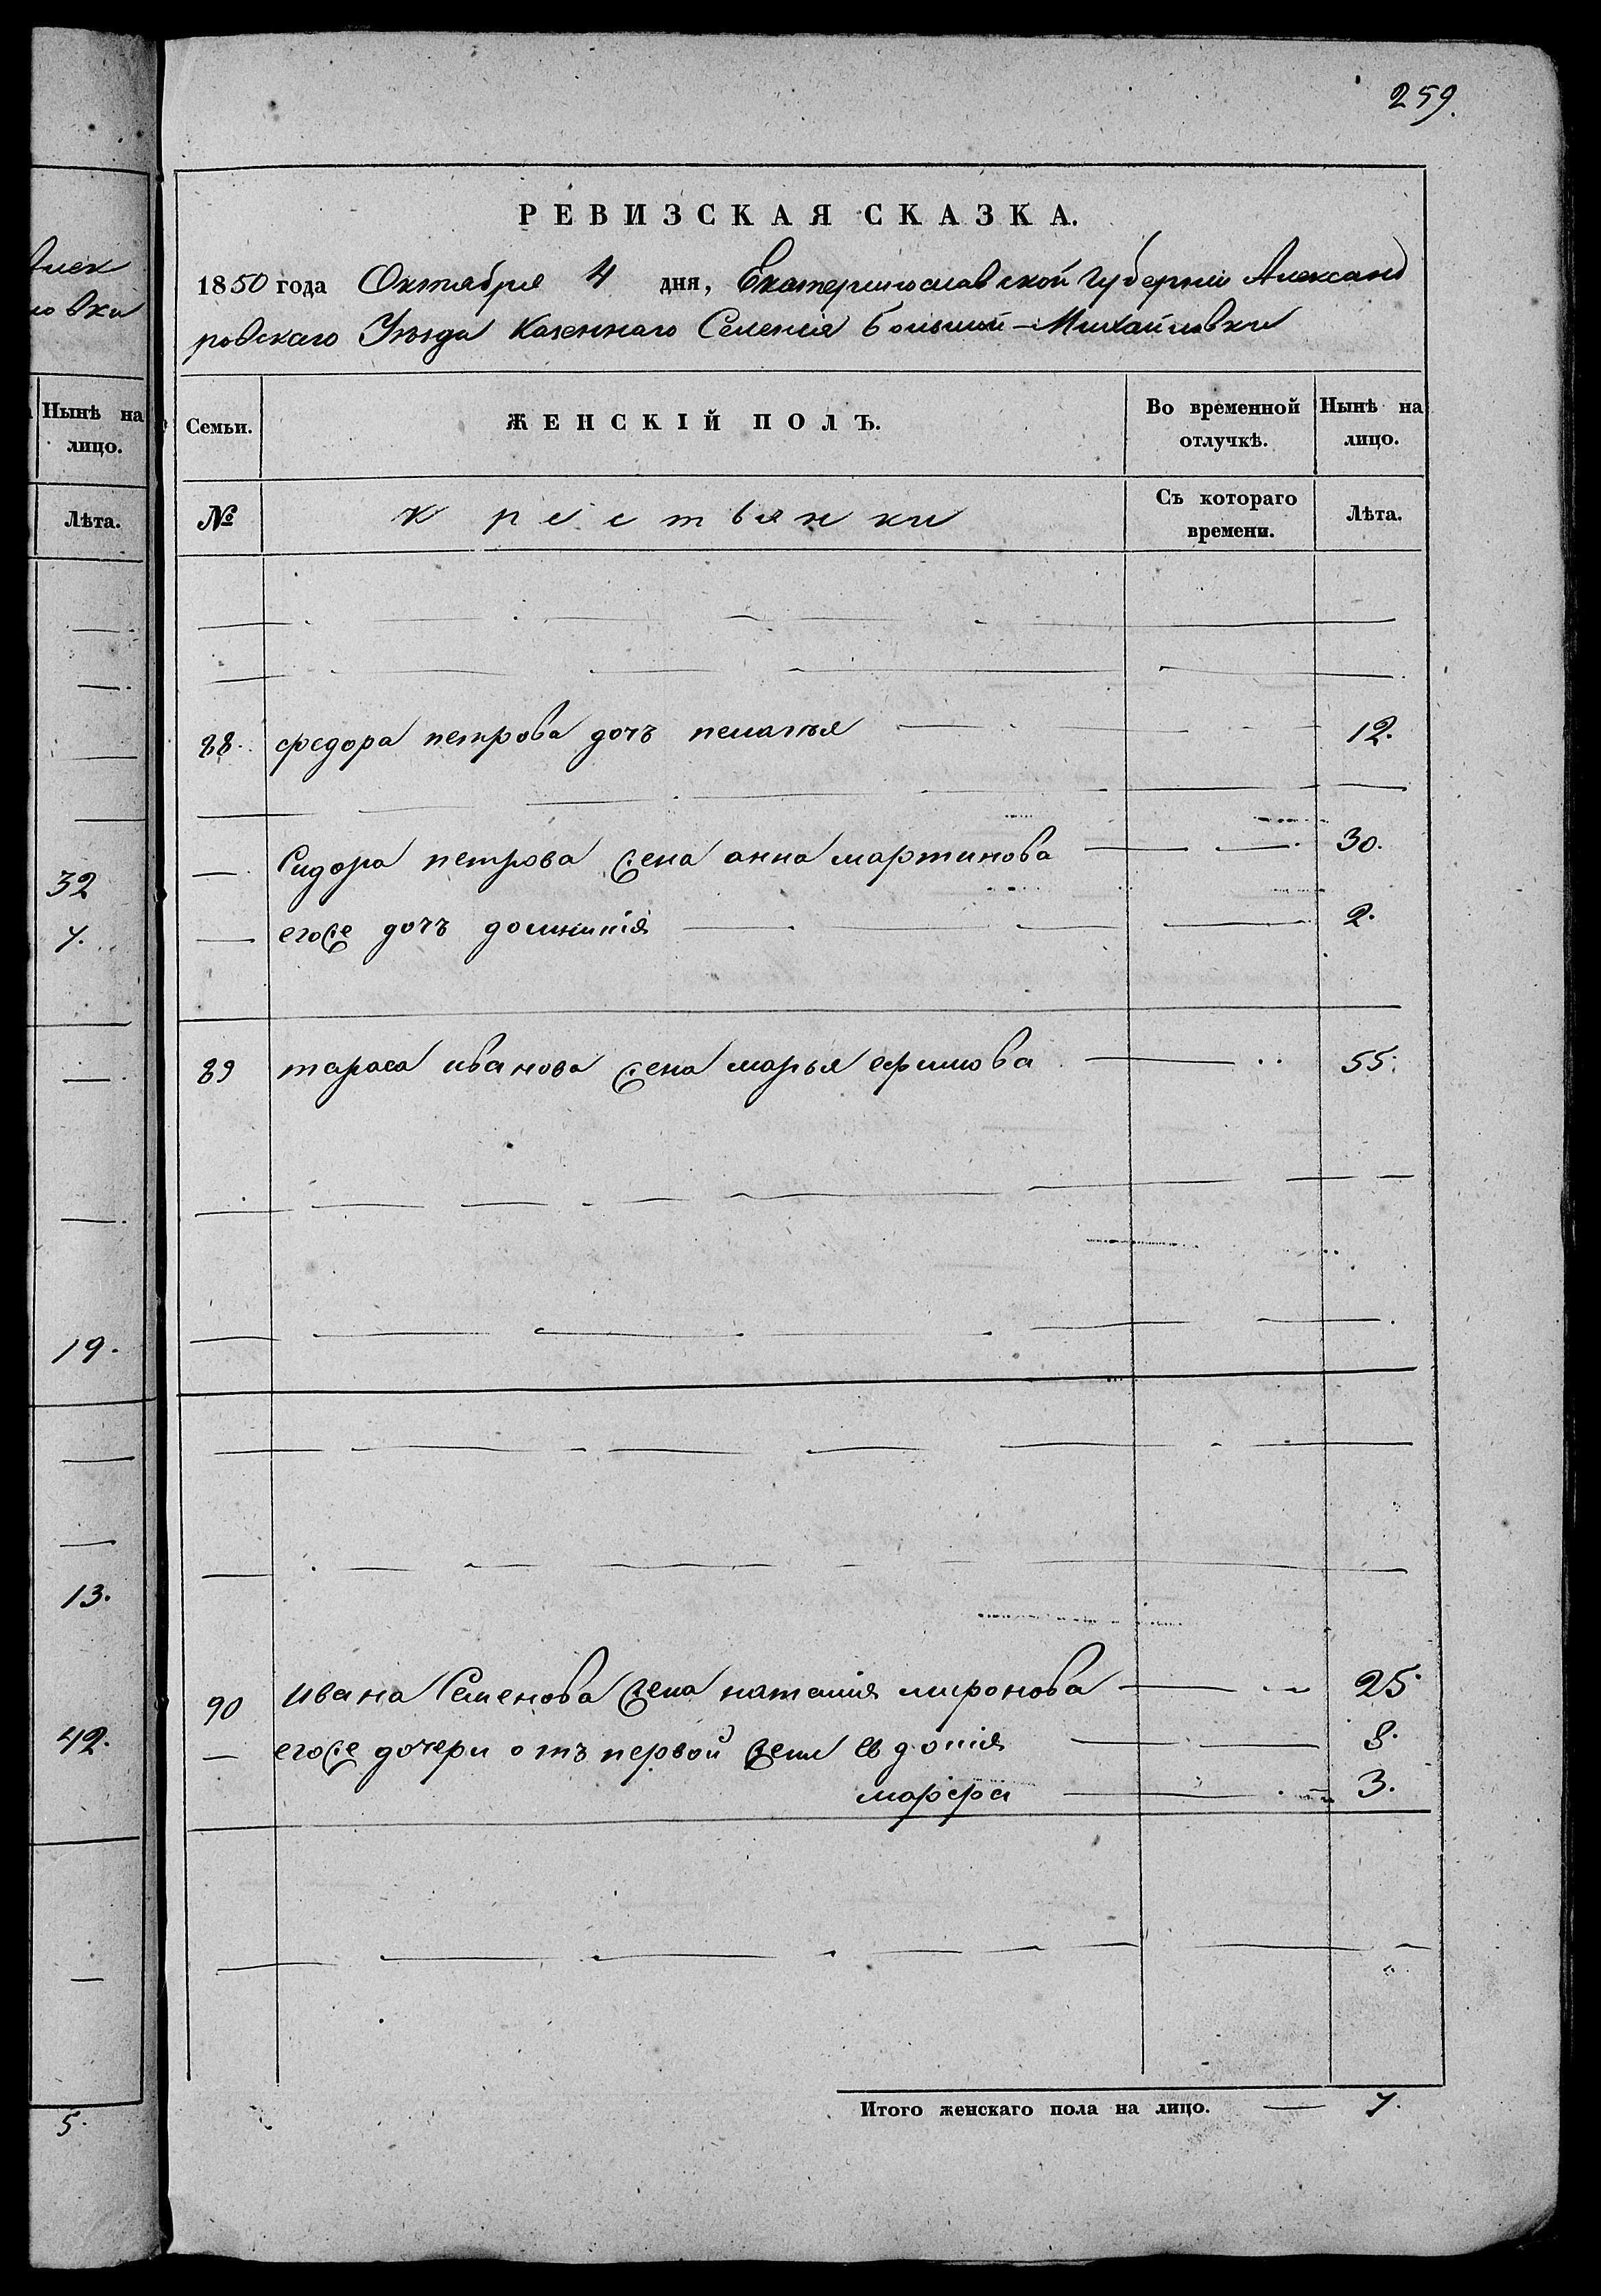 259.
РЕВИЗСКАЯ СКАЗКА.
1850 года Октября 4 дня, Екатеринославской Губерніи Александ
ровскаго Уѣзда Казеннаго Селенія Большой-Михайловки
Семьи.
ЖЕНСКІЙ ПОЛЪ.
Во временной отлучкѣ.
Нынѣ на лицо.
№
крестьянки
Съ котораго времени.
Лѣта.
88. федора петрова дочъ пелагѣя 12.
Сидора петрова жена анна мартинова 30.
егоже дочъ домникія 2.
89 тараса иванова жена марья ефимова 55.
90 ивана Семенова жена наталія миронова 25.
егоже дочери отъ первой жены евдокія 8.
марфа 3.
Итого женскаго пола на лицо. 7.
Нынѣ на
лицо.
Лѣта.
32
7.
19.
13.
42.
5.